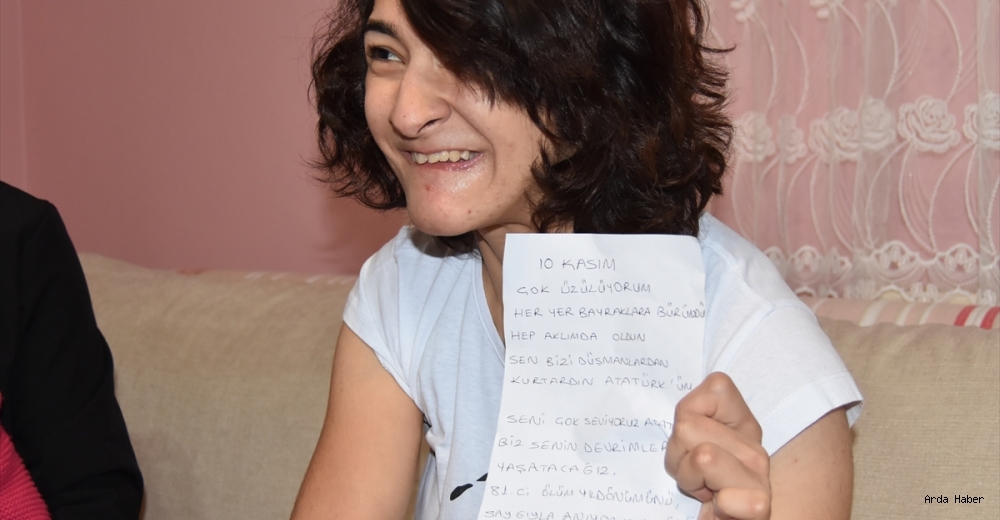 10 KASIM
ÇOK ÜZÜLÜYORUM
HER YER BAYRAKLARA BÜRÜNDÜ
HEP AKLIMDA OLDUN
SEN BİZİ DÜŞMANLARDAN
KURTARDIN ATATÜRK'ÜM
SENİ ÇOK SEVİYORUZ
BİZ SENİN DEVRİMLE
YAŞATACAĞIZ.
81.Cİ ÖLÜM YILDÖNÜMÜNÜ
SAYGIYLA
Arda Haber